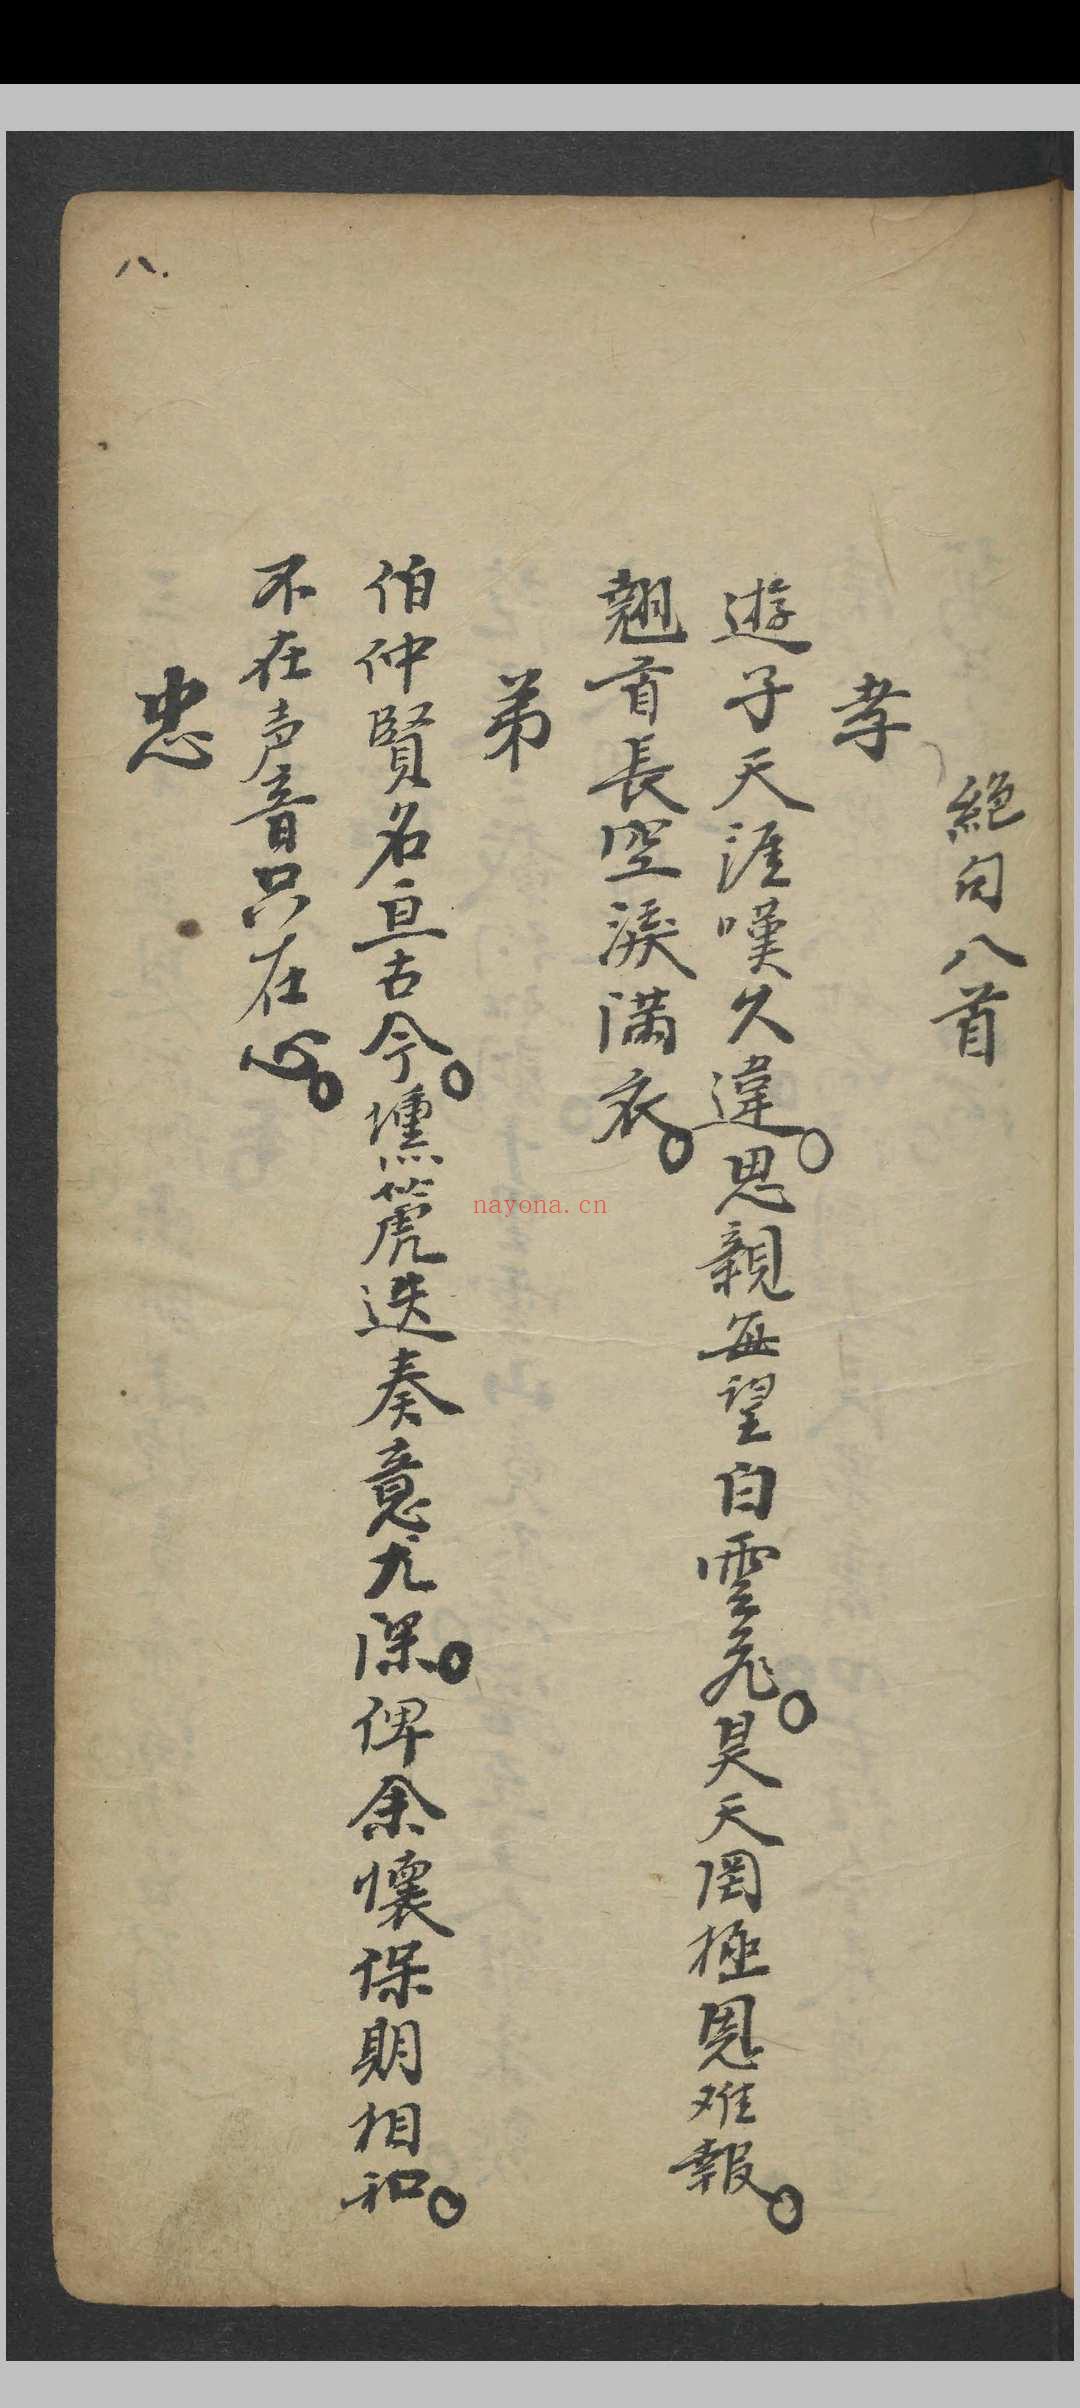 絕句八首
孝
遊子天涯嘆久違。思親每望白雲飛。昊天罔極恩难報。
翹首長空淚满衣。
弟
伯仲賢名亘古今。壎篪迭奏意尤深。俾余懷保期相和。
不在声音只在心。
忠
八.
nayona.cn